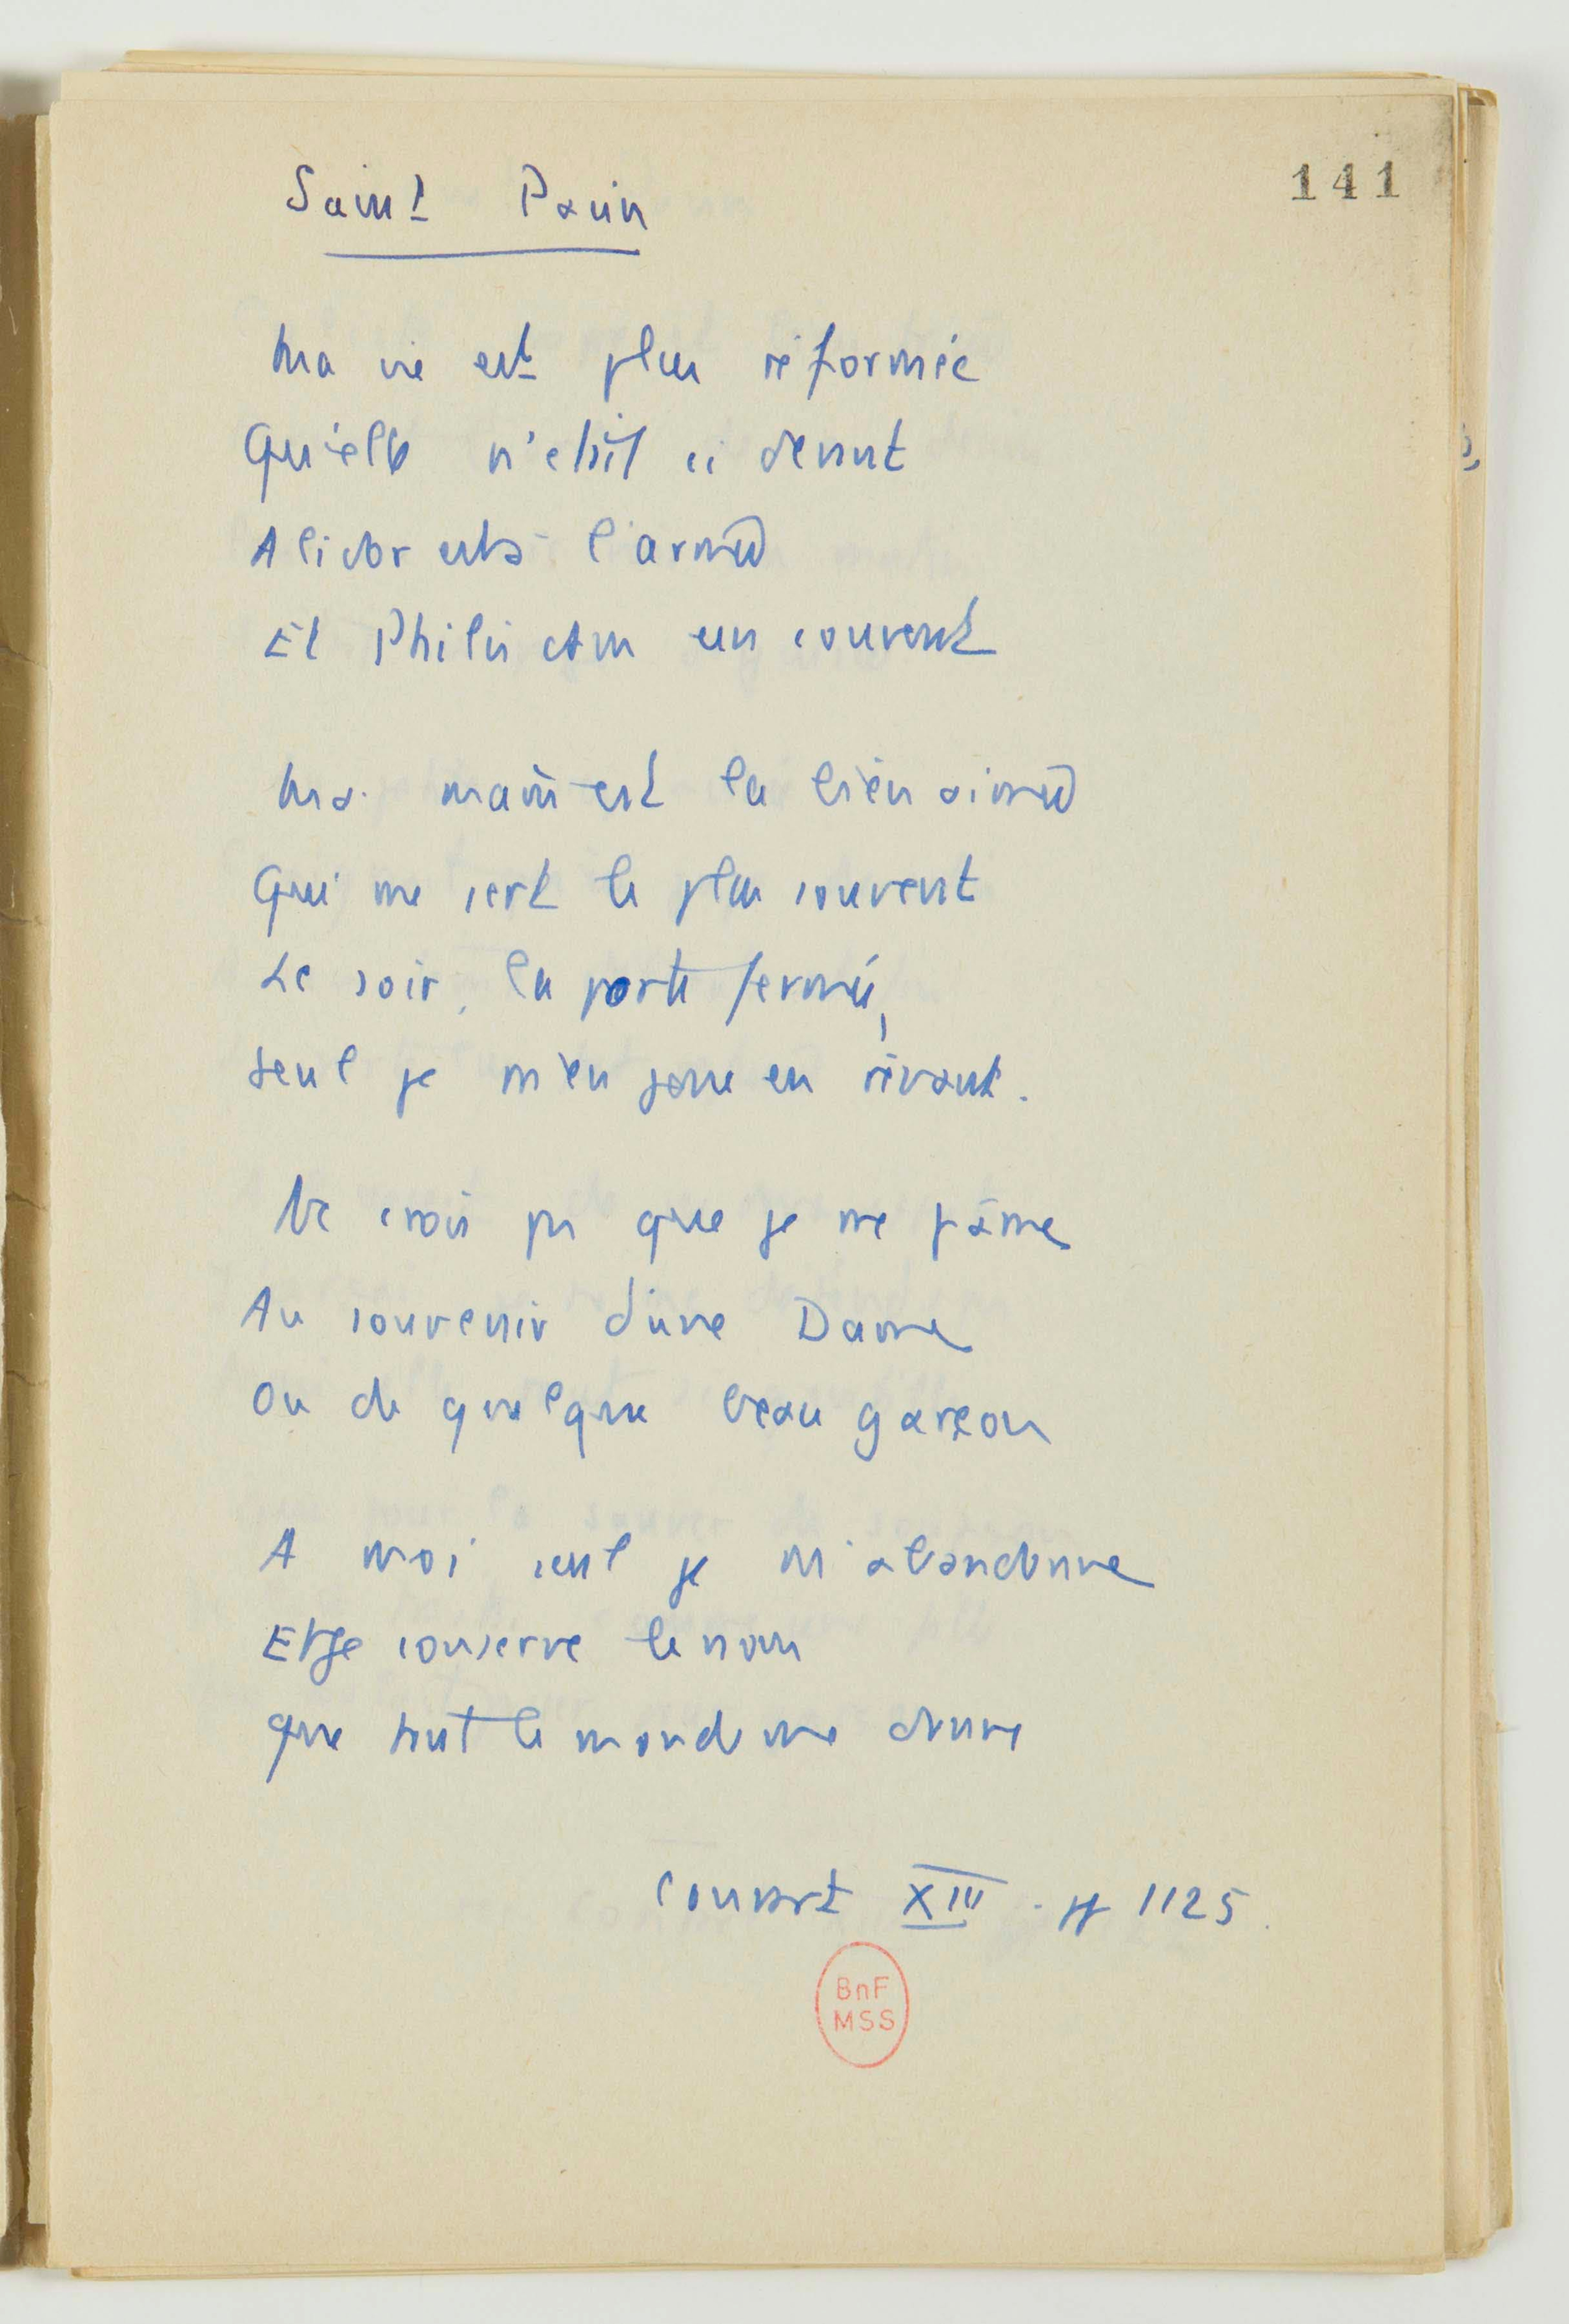 141
Saint Pavin
Ma vie est plus réformée
Qu'elle n'était ci devant
Alidor est à l'armée
Et Philis dans un couvent
Ma main est la bien aimée
Qui me sert le plus souvent
Le soir, la porte fermée,
Seul je m'en joue en rêvant.
Ne crois pas que je me pâme
Au souvenir d'une Dame
Ou de quelque beau garçon
A moi seul je m'abandonne
Et je conserve le nom
que tout le monde me donne
Conrart XIII - p 1125.
BnF
MSS